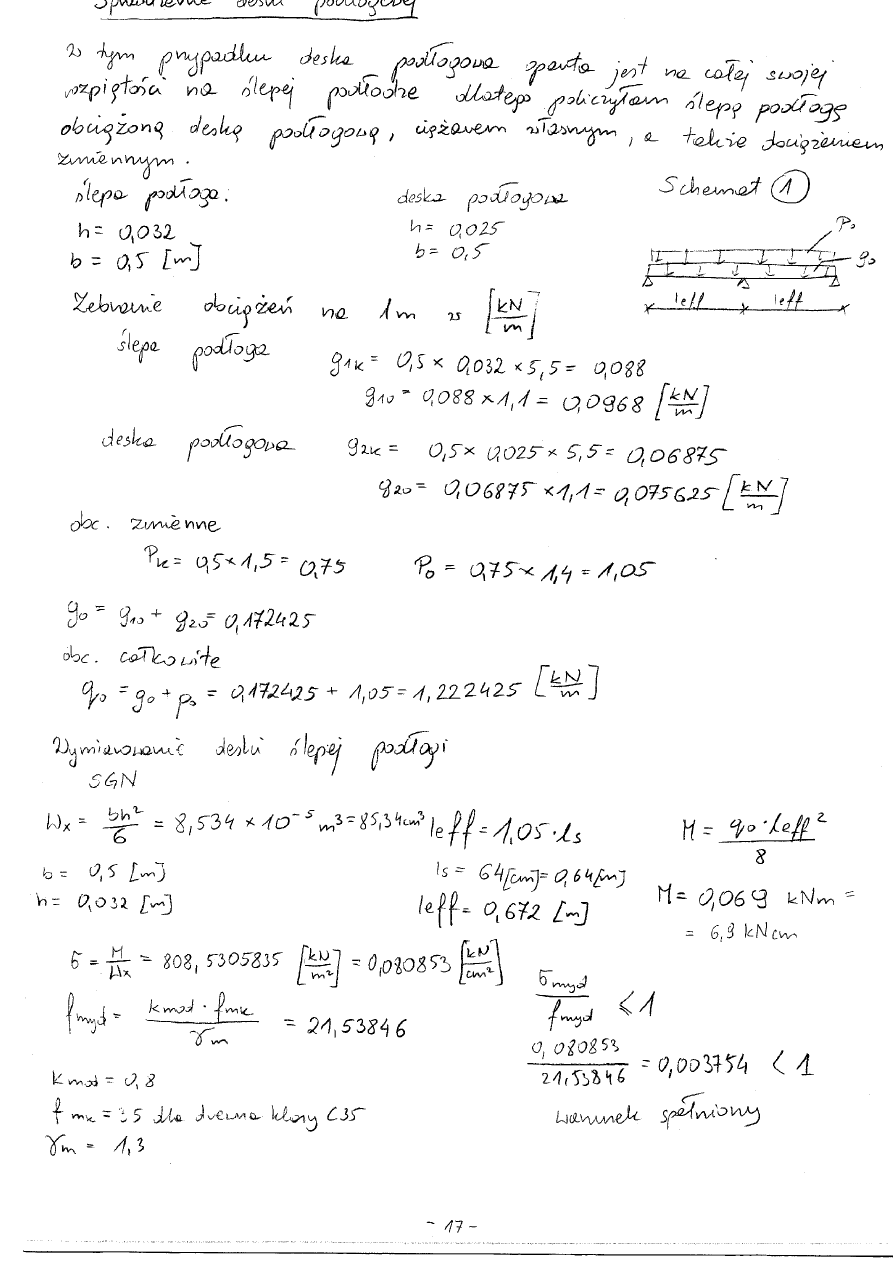 Sprawdzenie deski podłogowej
W tym przypadku deska podłogowa oparta jest na całej swojej
rozpiętości na ślepej podłodze dlatego policzyłam ślepą podłogę
obciążoną deską podłogową, ciężarem własnym, a także obciążeniem
zmiennym.
ślepa podłoga: deska podłogowa Schemat 1
h = 0,032 h = 0,025
b = 0,5 [m] b = 0,5
P₀
g₀
leff leff
Zebranie obciążeń na 1m w [kN/m]
ślepa podłoga g1k = 0,5 × 0,032 × 5,5 = 0,088
g10 = 0,088 × 1,1 = 0,0968 [kN/m]
deska podłogowa g2k = 0,5 × 0,025 × 5,5 = 0,06875
g20 = 0,06875 × 1,1 = 0,075625 [kN/m]
obc. zmienne
Pk = 0,5 × 1,5 = 0,75 P₀ = 0,75 × 1,4 = 1,05
g₀ = g10 + g20 = 0,172425
obc. całkowite
q₀ = g₀ + p₀ = 0,172425 + 1,05 = 1,222425 [kN/m]
Wymiarowanie deski ślepej podłogi
SGN
Wx = bh²/6 = 8,534 × 10⁻⁵ m³ = 85,34 cm³ leff = 1,05 · ls M = q₀ · leff²/8
b = 0,5 [m] ls = 64 [cm] = 0,64 [m]
h = 0,032 [m] leff = 0,672 [m] M = 0,069 kNm =
= 6,9 kNcm
σ = M/Wx = 808,5305835 [kN/m²] = 0,080853 [kN/cm²]
fmyd = kmod · fmk/γm = 21,53846 σmyd/fmyd ≤ 1
0,080853/21,53846 = 0,003754 < 1
kmod = 0,8
fmk = 35 dla drewna klasy C35 warunek spełniony
γm = 1,3
- 17 -